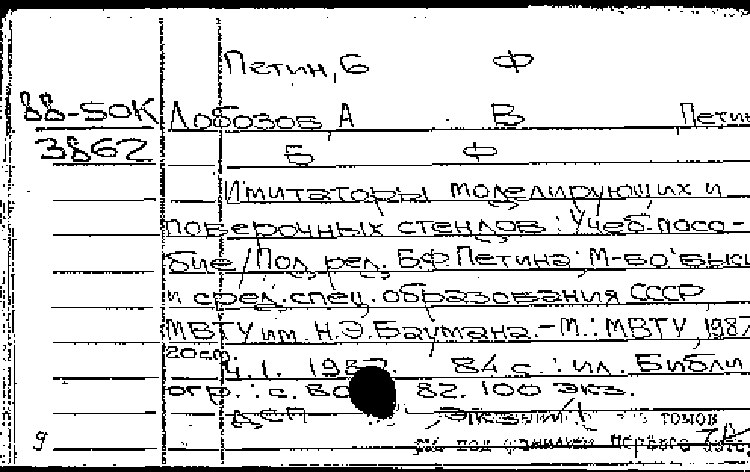 Петин, Б Ф
88-50К Лобозов А. В Петин
3862 Б Ф
Имитаторы моделирующих и
поверочных стендов : Учеб. посо-
бие / Под ред. Б.Ф Петина; М-во высш
и сред. спец. образования СССР,
МВТУ им. Н.Э. Баумана. - М. : МВТУ, 1987
20см.
Ч. 1. 1987. 84 с. : ил. Библи
огр.: с. 82. 100 экз.
ДСП томов
9 под фамилией первого